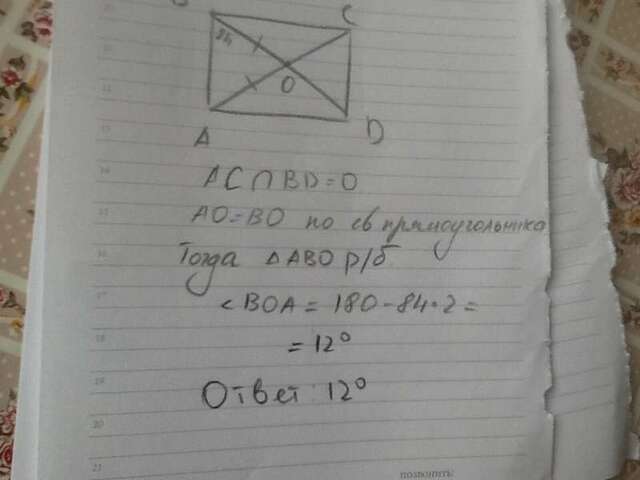 C
84
O
A
D
AC∩BD=O
AO=BO по св прямоугольника
Тогда △ABO р/б
<BOA = 180-84·2=
= 12°
Ответ: 12°
позвонить: